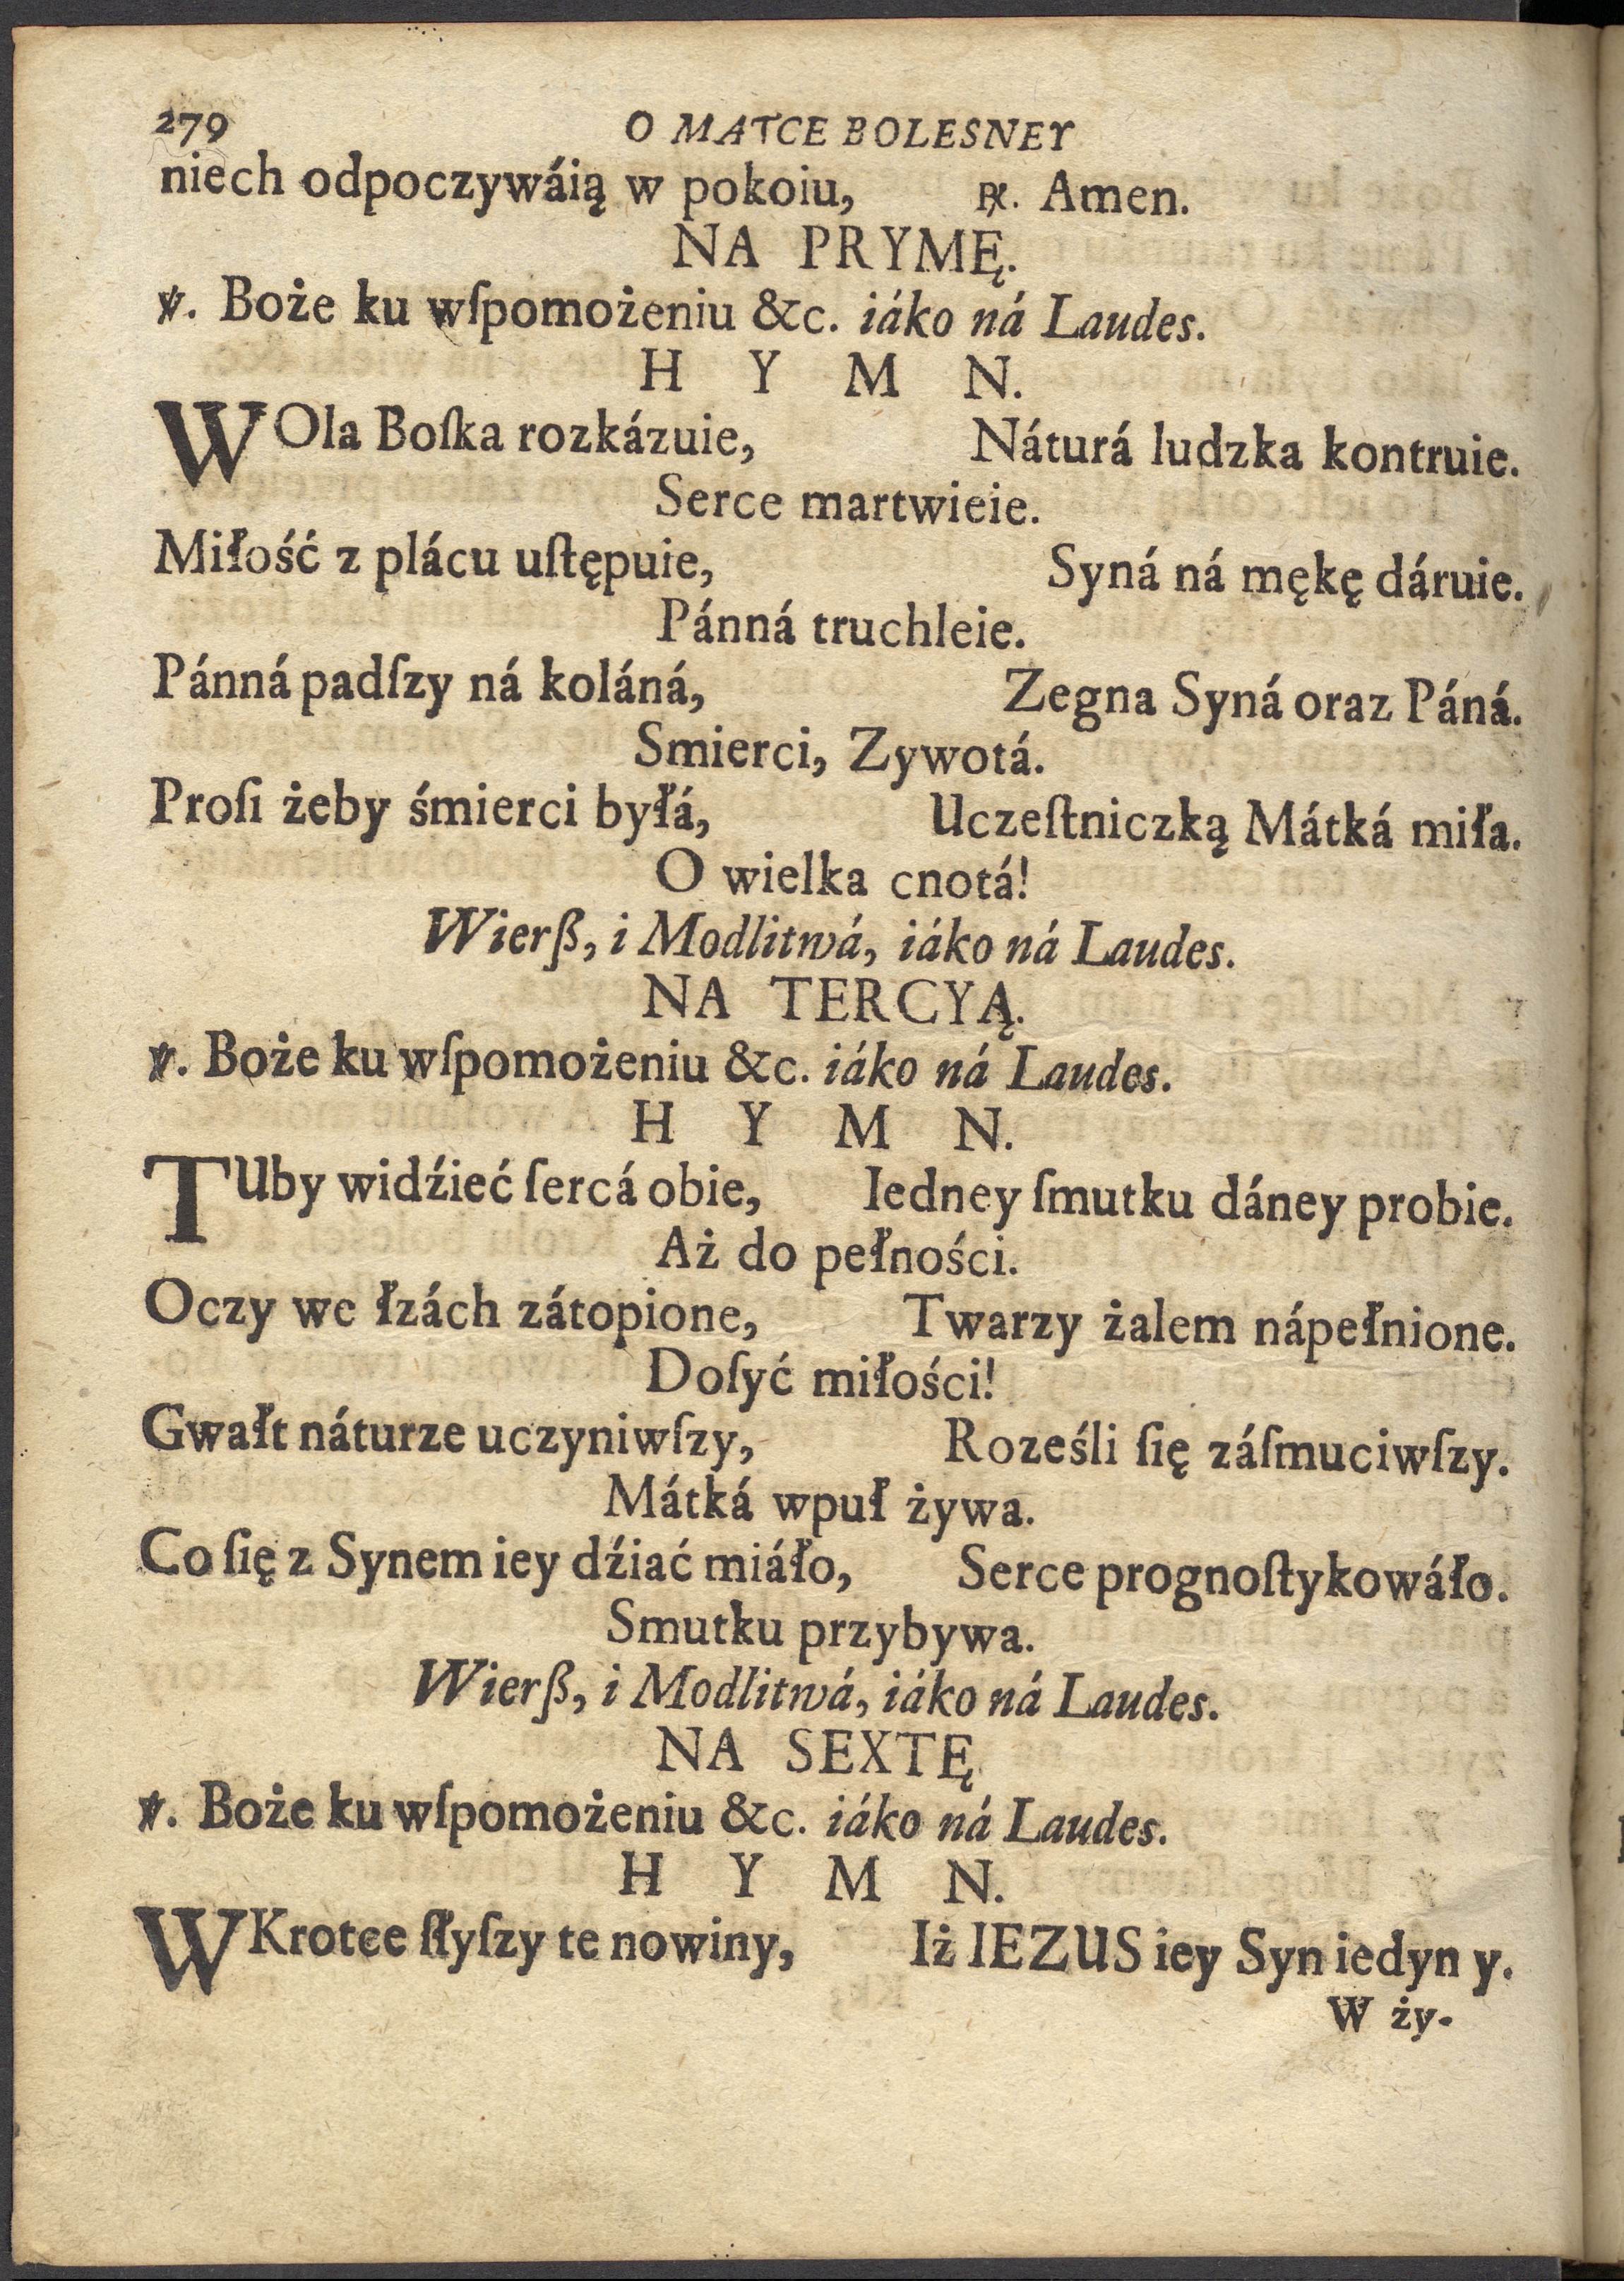 279 O MATCE BOLESNEY
niech odpoczywáią w pokoiu, ℟. Amen.
NA PRYMĘ.
℣. Boże ku wſpomożeniu &c. iáko ná Laudes.
H Y M N.
WOla Boſka rozkázuie, Náturá ludzka kontruie.
Serce martwieie.
Miłość z plácu uſtępuie, Syná ná mękę dáruie.
Pánná truchleie.
Pánná padſzy ná koláná, Zegna Syná oraz Páná.
Smierci, Zywotá.
Proſi żeby śmierci byłá, Uczeſtniczką Mátká miła.
O wielka cnotá!
Wierß, i Modlitwá, iáko ná Laudes.
NA TERCYĄ.
℣. Boże ku wſpomożeniu &c. iáko ná Laudes.
H Y M N.
TUby widźieć ſercá obie, Iedney ſmutku dáney probie.
Aż do pełności.
Oczy we łzách zátopione, Twarzy żalem nápełnione.
Doſyć miłości!
Gwałt náturze uczyniwſzy, Roześli ſię záſmuciwſzy.
Mátká wpuł żywa.
Co ſię z Synem iey dźiać miáło, Serce prognoſtykowáło.
Smutku przybywa.
Wierß, i Modlitwá, iáko ná Laudes.
NA SEXTĘ
℣. Boże ku wſpomożeniu &c. iáko ná Laudes.
H Y M N.
WKrotce ſłyſzy te nowiny, Iż IEZUS iey Syn iedyny.
W ży-